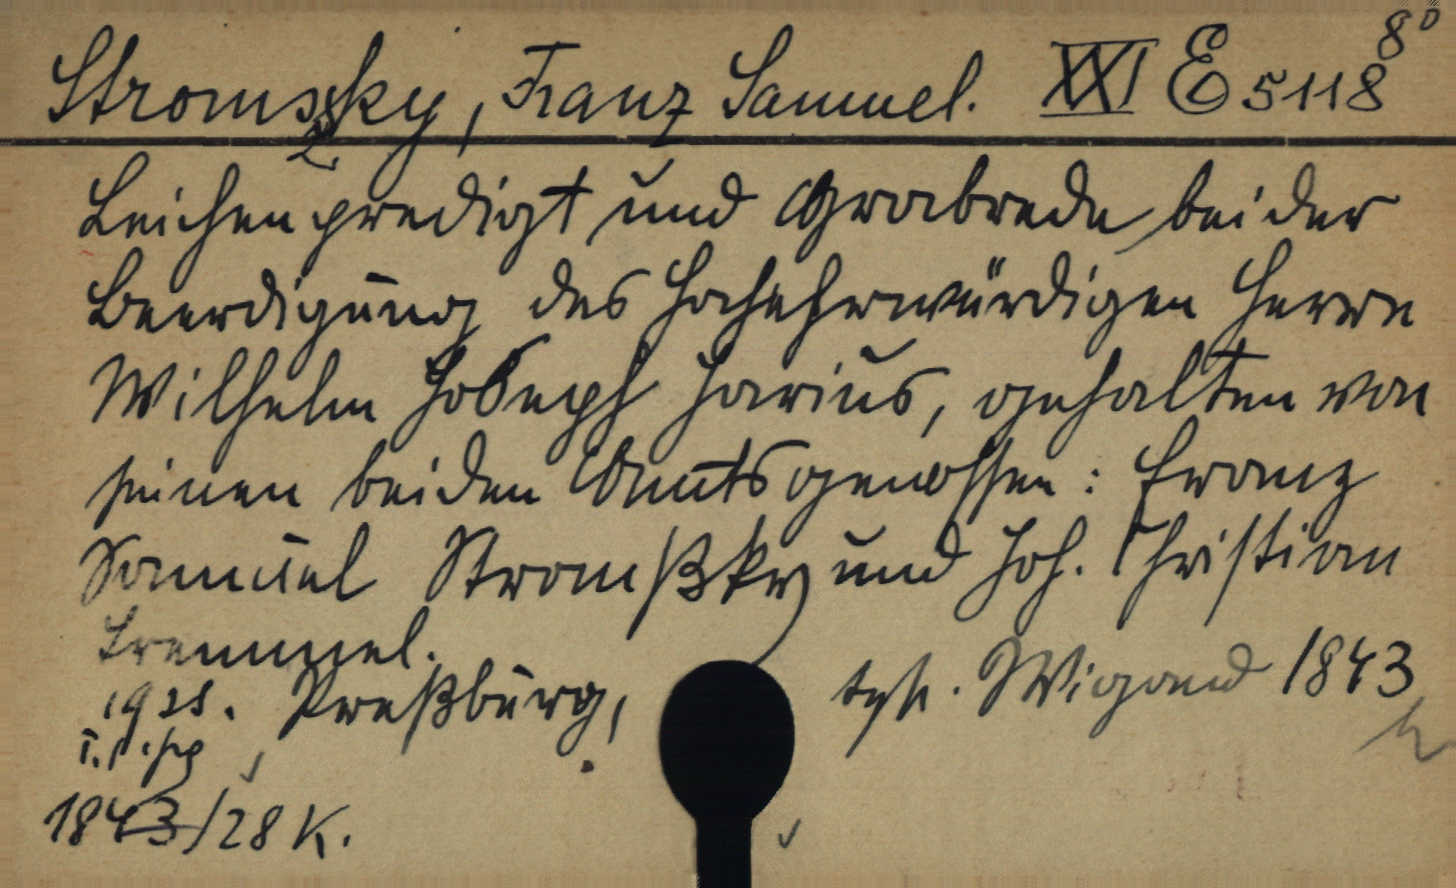 Stromszky, Franz Samuel. XXI E 5118 8°
Leichenpredigt und Grabrede bei der
Beerdigung des hochehrwürdigen Herrn
Wilhelm Joseph Jarius, gehalten von
seinen beiden Amtsgenossen: Franz
Samuel Stromßky und Joh. Christian
Tremmel.
Preßburg, typ. Wigand 1843
1843/28 K.